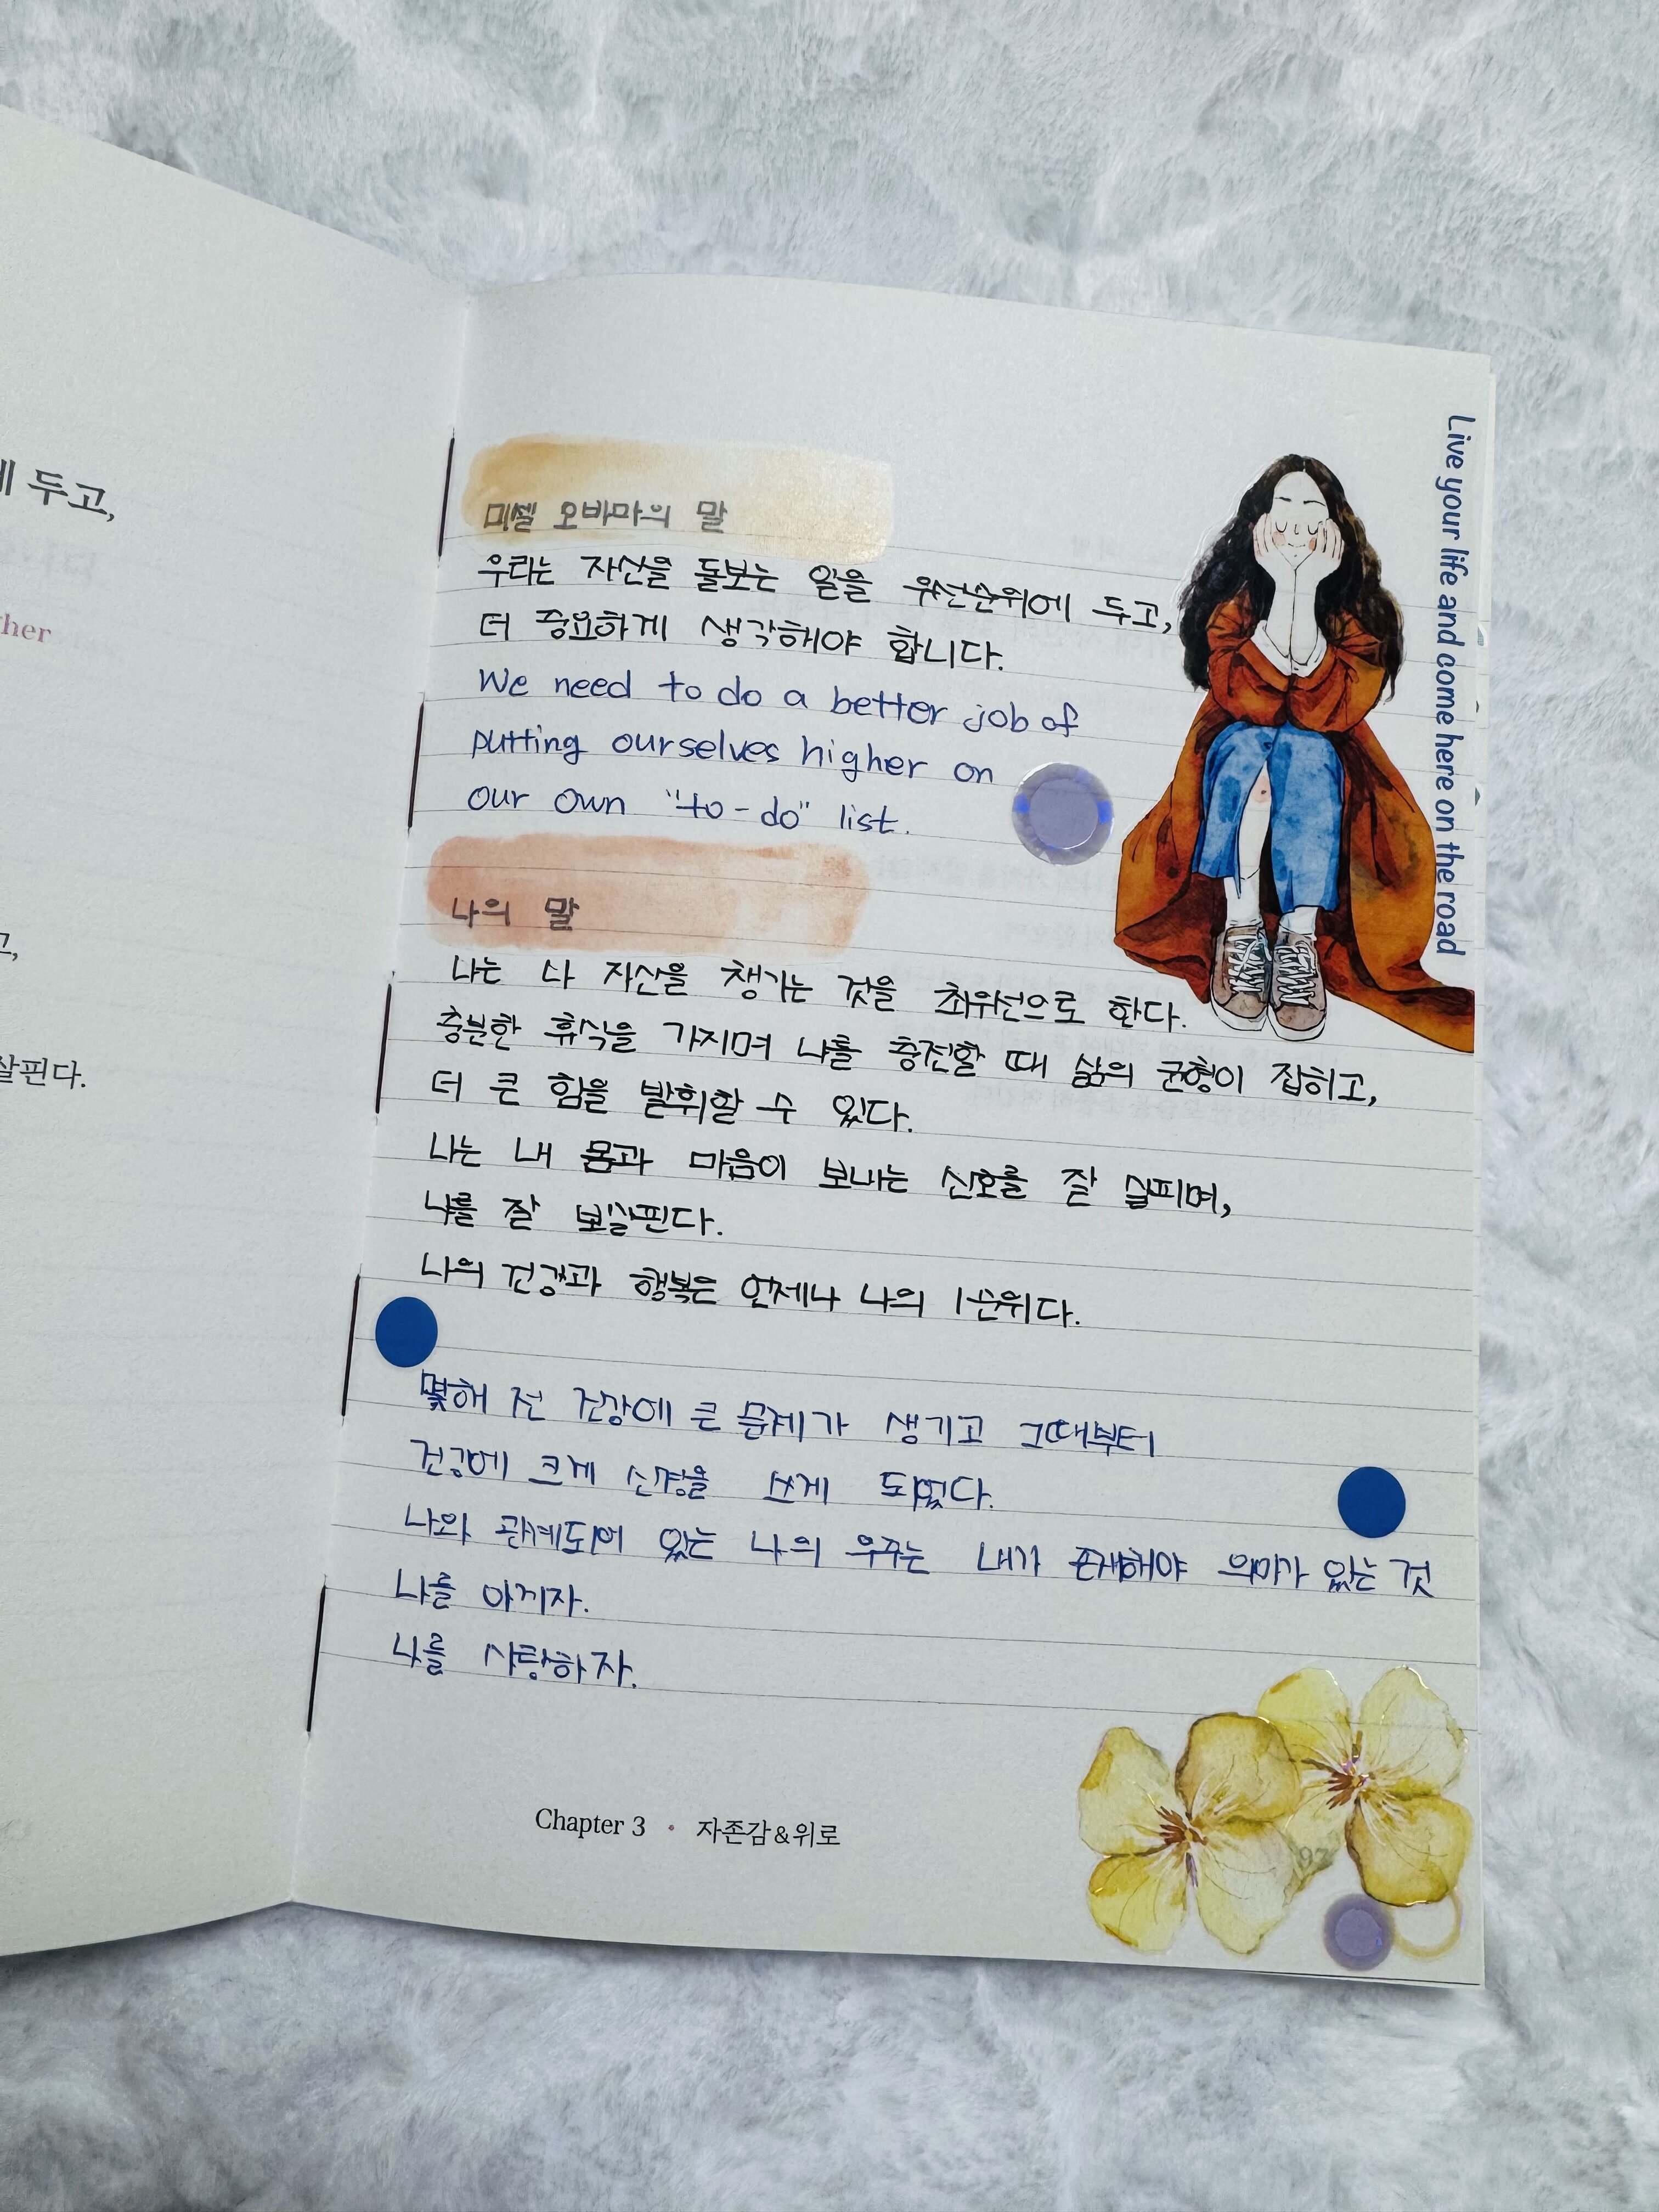 에 두고,
her
고,
살핀다.
미셸 오바마의 말
우리는 자신을 돌보는 일을 우선순위에 두고,
더 중요하게 생각해야 합니다.
We need to do a better job of
putting ourselves higher on
our own "to-do" list.
나의 말
나는 나 자신을 챙기는 것을 최우선으로 한다.
충분한 휴식을 가지며 나를 충전할 때 삶의 균형이 잡히고,
더 큰 힘을 발휘할 수 있다.
나는 내 몸과 마음이 보내는 신호를 잘 살피며,
나를 잘 보살핀다.
나의 건강과 행복은 언제나 나의 1순위다.
몇해 전 건강에 큰 문제가 생기고 그때부터
건강에 크게 신경을 쓰게 되었다.
나와 관계되어 있는 나의 우주는 내가 존재해야 의미가 있는 것
나를 아끼자.
나를 사랑하자.
Live your life and come here on the road
Chapter 3 • 자존감&위로